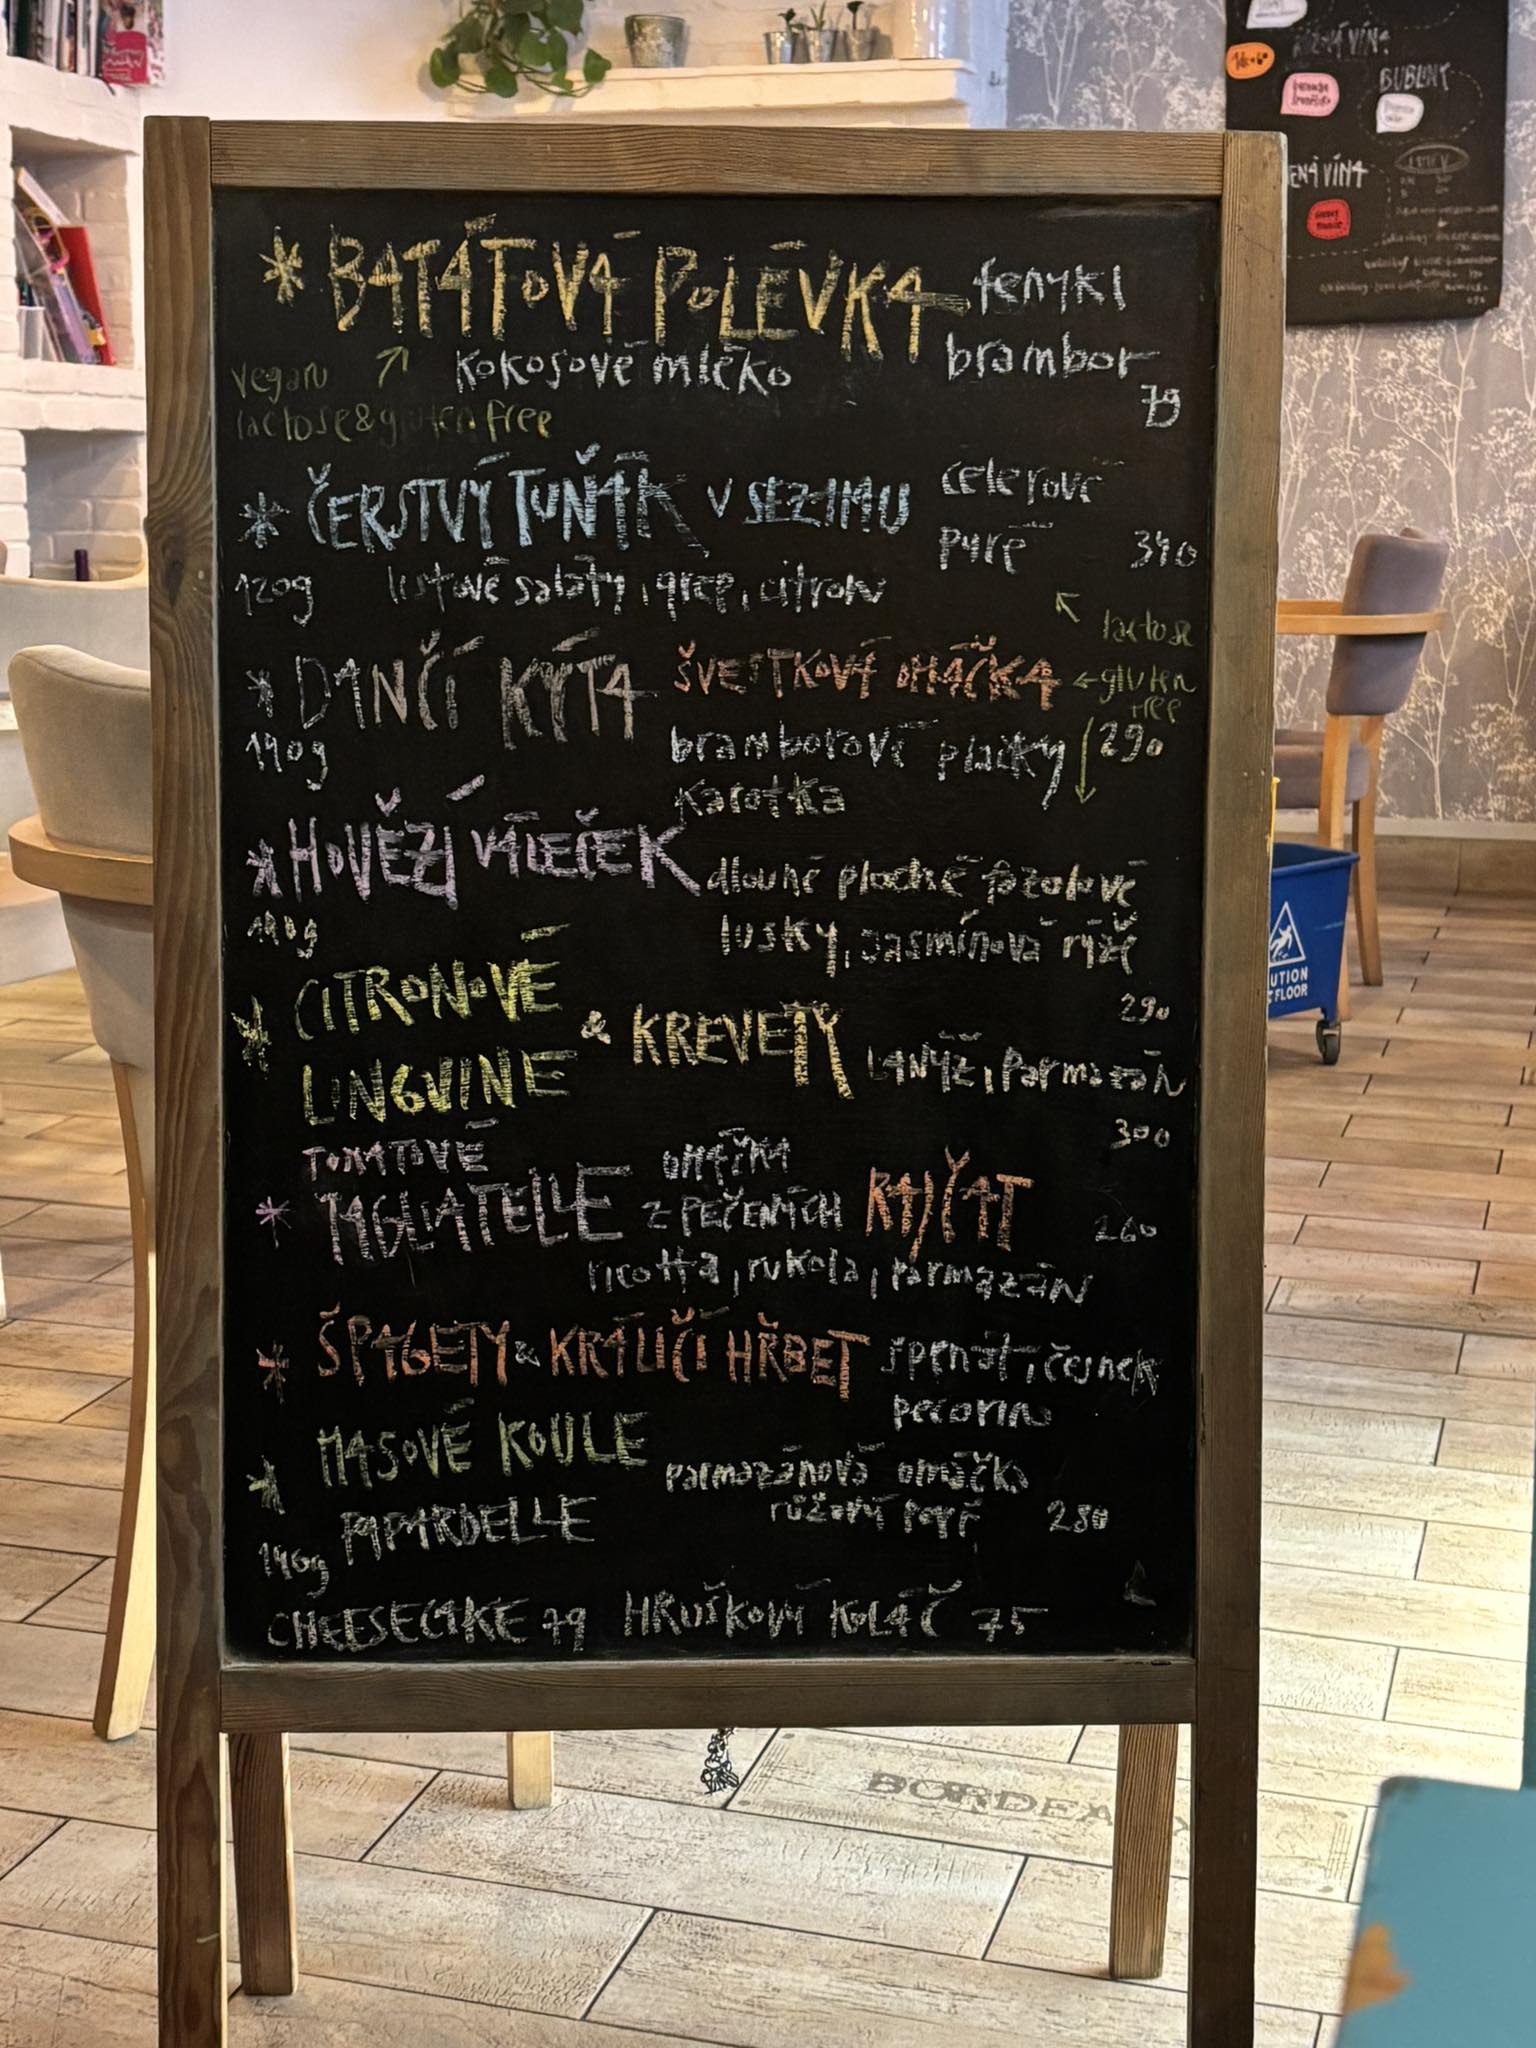 * BATÁTOVÁ POLÉVKA fenykl
vegan kokosové mléko brambor
lactose & gluten free 79
* ČERSTVÝ TUŇÁK V SEZAMU celerové
pyré 340
120g listové saláty, grep, citron
lactose
gluten
free
* DANČÍ KÝTA ŠVESTKOVÁ OMÁČKA
190g bramborové placky 290
karotka
* HOVĚZÍ VÁLEČEK dlouhé ploché fazolové
190g lusky, jasmínová rýže
290
* CITRONOVÉ
LINGVINE & KREVETY LANÝŽ, parmazán
300
TOMATOVÉ OMÁČKA
* TAGLIATELLE Z PEČENÝCH RAJČAT 260
ricotta, rukola, parmazán
* ŠPAGETY & KRÁLIČÍ HŘBET špenát, česnek
pecorino
* MASOVÉ KOULE parmazánová omáčka
140g PAPARDELLE růžový pepř 280
CHEESECAKE 79 HRUŠKOVÝ KOLÁČ 75
BUBLINY
VÍNA
CAUTION
FLOOR
BORDEA